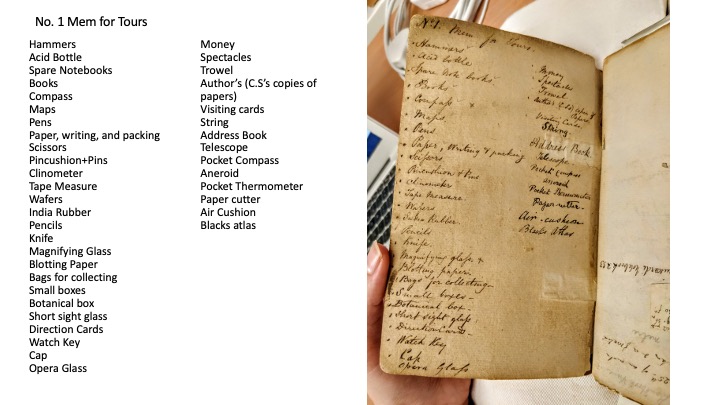 No. 1 Mem for Tours
Hammers
Acid Bottle
Spare Notebooks
Books
Compass
Maps
Pens
Paper, writing, and packing
Scissors
Pincushion+Pins
Clinometer
Tape Measure
Wafers
India Rubber
Pencils
Knife
Magnifying Glass
Blotting Paper
Bags for collecting
Small boxes
Botanical box
Short sight glass
Direction Cards
Watch Key
Cap
Opera Glass
Money
Spectacles
Trowel
Author's (C.S's copies of
papers)
Visiting cards
String
Address Book
Telescope
Pocket Compass
Aneroid
Pocket Thermometer
Paper cutter
Air Cushion
Blacks atlas
No 1. Mem for Tours.
Hammers
Acid bottle
Spare note books
Books
Compass
Maps
Pens
Paper, Writing & packing
Scissors
Pincushion & Pins
Clinometer
Tape Measure
Wafers
India Rubber
Pencils
Knife
Magnifying glass
Blotting paper
Bags for collecting
Small boxes
Botanical box
Short sight glass
Direction Cards
Watch Key
Cap
Opera Glass
Money
Spectacles
Trowel
Visiting Cards
String
Address Book
Telescope
Pocket Compass
aneroid
Pocket Thermometer
Paper cutter
Air-cushion
Blacks Atlas